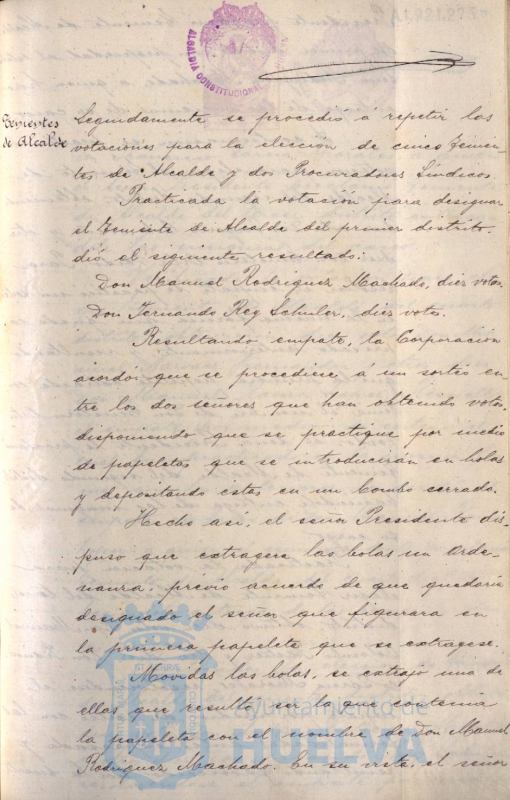 ALCALDIA CONSTITUCIONAL
A1.921.977
Tenientes
de Alcalde
Seguidamente se procedió á repetir las
votaciones para la elección de cinco Tenien-
tes de Alcalde y dos Procuradores Síndicos
Practicada la votación para designar
el Teniente de Alcalde del primer distrito.
dió el siguiente resultado:
Don Manuel Rodriguez Machado, diez votos.
Don Fernando Rey Schuler, diez votos.
Resultando empate, la Corporación
acordó que se procediese á un sorteo en-
tre los dos señores que han obtenido votos,
disponiendo que se practique por medio
de papeletas que se introducirán en bolas
y depositando estas en un bombo cerrado.
Hecho así, el señor Presidente dis-
puso que extragere las bolas un Orde-
nanza, previo acuerdo de que quedaria
designado el señor que figurara en
la primera papeleta que se extragese.
Movidas las bolas, se extrajo una de
ellas que resultó ser la que contenia
la papeleta con el nombre de Don Manuel
Rodriguez Machado. En su vista, el señor
Ayuntamiento de
HUELVA